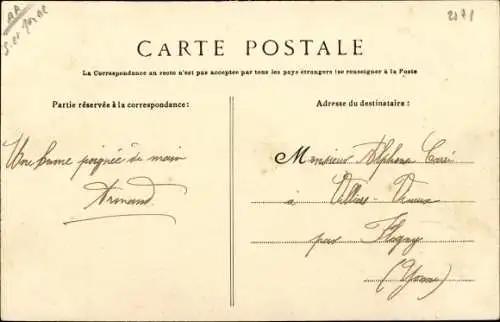 2071
CARTE POSTALE
La Correspondance au recto n'est pas acceptée par tous les pays étrangers (se renseigner à la Poste
Partie réservée à la correspondance:
Adresse du destinataire:
Une bonne poignée de main
Armand
Monsieur Alphonse Carré
à Villiers-Vineux
par Flogny
(Yonne)